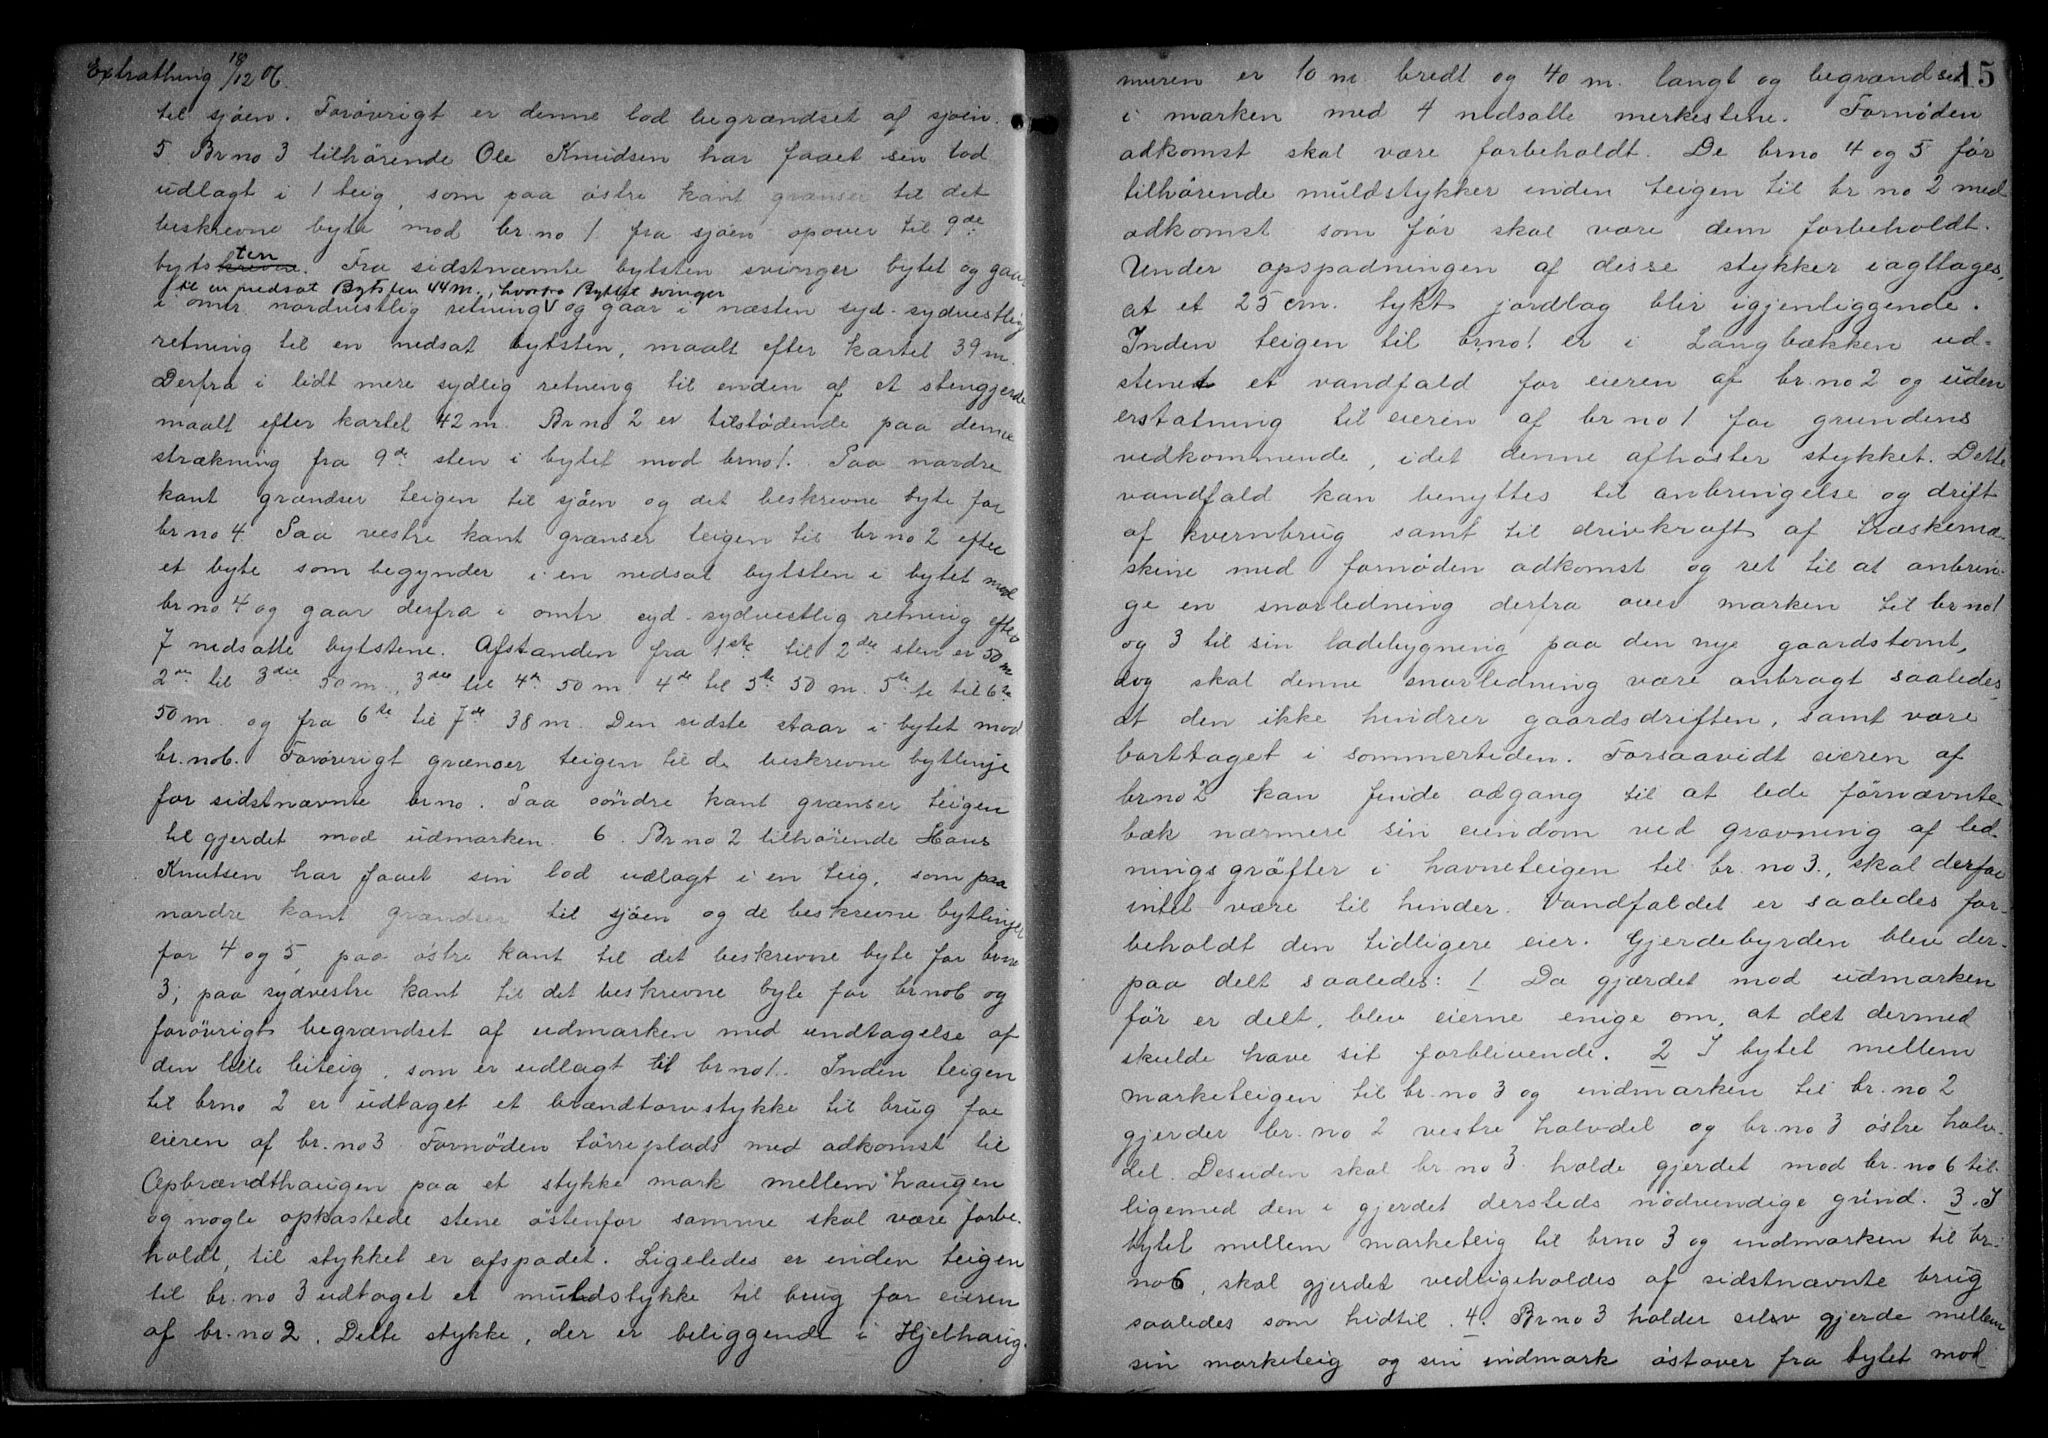 Extrathing 18/12 06.
til sjöen. Forøvrigt er denne lod begrændset af sjøen.
5. Br no 3 tilhörende Ole Knudsen har faaet sin lod
udlagt i 1 teig, som paa östre kant grænser til det
beskrevne byte mod br.no 1 fra sjöen opover til 9de
bytsten. Fra sidstnæmte bytsten svinger bytet og gaar
til en nedsat Bytsten 44 m., hvorfra Byttet svinger
i omtr nordvestlig retning V og gaar i næsten syd-sydvestlig
retning til en nedsat bytsten, maalt efter kartet 39 m.
Derfra i lidt mere sydlig retning til enden af et stengjerde
maalt efter kartet 42 m. Br no 2 er tilstødende paa denne
strækning fra 9de sten i bytet mod brno 1. Paa nordre
kant grændser teigen til sjöen og det beskrevne byte for
br no 4. Paa vestre kant grænser teigen til br no 2 efter
et byte som begynder i en nedsat bytsten i bytet mod
br no 4 og gaar derfra i omtr syd-sydvestlig retning efter
7 nedsatte bytstene. Afstanden fra 1ste til 2den sten er 50 m
2den til 3die 50 m., 3die til 4de 50 m. 4de til 5te 50 m. 5te til 6te
50 m. og fra 6te til 7de 38 m. Den sidste staar i bytet mod
br.no 6. Forøvrigt grænser teigen til de beskrevne bytlinje
for sidstnævnte brno. Paa söndre kant grænser teigen
til gjerdet mod udmarken. 6. Br no 2 tilhörende Hans
Knutsen har faaet sin lod udlagt i en teig, som paa
nordre kant grændser til sjöen og de beskrevne bytlinjer
for 4 og 5, paa östre kant til det beskrevne byte for brno
3, paa sydvestre kant til det beskrevne byte for brno 6 og
forövrigt begrændset af udmarken med undtagelse af
den lille biteig, som er udlagt til brno 1. Inden teigen
til brno 2 er udtaget et brændtorvstykke til brug for
eieren af br.no 3. Fornøden törreplads med adkomst til
Opbrændthaugen paa et stykke mark mellem haugen
og nogle opkastede stene östenfor samme skal være forbe-
holdt, til stykket er afspadet. Ligeledes er inden teigen
til br.no 3 udtaget et muldstykke til brug for eieren
af br.no 2. Dette stykke, der er beliggende i Hjelhaug-
15
muren er 10 m. bredt og 40 m. langt og begrændset
i marken med 4 nedsatte merkestene. Fornøden
adkomst skal være forbeholdt. De brno 4 og 5 før
tilhørende muldstykker inden teigen til br no 2 med
adkomst som før skal være dem forbeholdt.
Under opspadningen af disse stykker iagttages,
at et 25 cm. tykt jordlag blir igjenliggende.
Inden teigen til brno 1 er i Langbækken ud-
stenet et vandfald for eieren af br.no 2 og uden
erstatning til eieren af br no 1 for grundens
vedkommende, idet denne afhøster stykket. Dette
vandfald kan benyttes til anbringelse og drift
af kvernbrug samt til drivkraft af træskema-
skine med fornøden adkomst og ret til at anbrin-
ge en snorledning derfra over marken til br no 1
og 3 til sin ladebygning paa den nye gaardstomt,
dog skal denne snorledning være anbragt saaledes
at den ikke hindrer gaardsdriften, samt være
borttaget i sommertiden. Forsaavidt eieren af
brno 2 kan finde adgang til at lede førnævnte
bæk nærmere sin eiendom ved gravning af led-
ningsgröfter i havneteigen til br.no 3, skal derfor
intet være til hinder. Vandfaldet er saaledes for-
beholdt den tidligere eier. Gjerdebyrden blev der-
paa delt saaledes: 1 Da gjærdet mod udmarken
før er delt, blev eierne enige om, at det dermed
skulde have sit forblivende. 2 I bytet mellem
marketeigen til br.no 3 og indmarken til br.no 2
gjerder br.no 2 vestre halvdel og br.no 3 östre halv-
del. Desuden skal br.no 3 holde gjerdet mod br.no 6 til-
ligemed den i gjerdet dersteds nødvendige grind. 3. I
bytet mellem marketeig til brno 3 og indmarken til br.
no 6, skal gjerdet vedligeholdes af sidstnævnte brug
saaledes som hidtil. 4. Br no 3 holder selv gjerde mellem
sin marketeig og sin indmark östover fra bytet mod